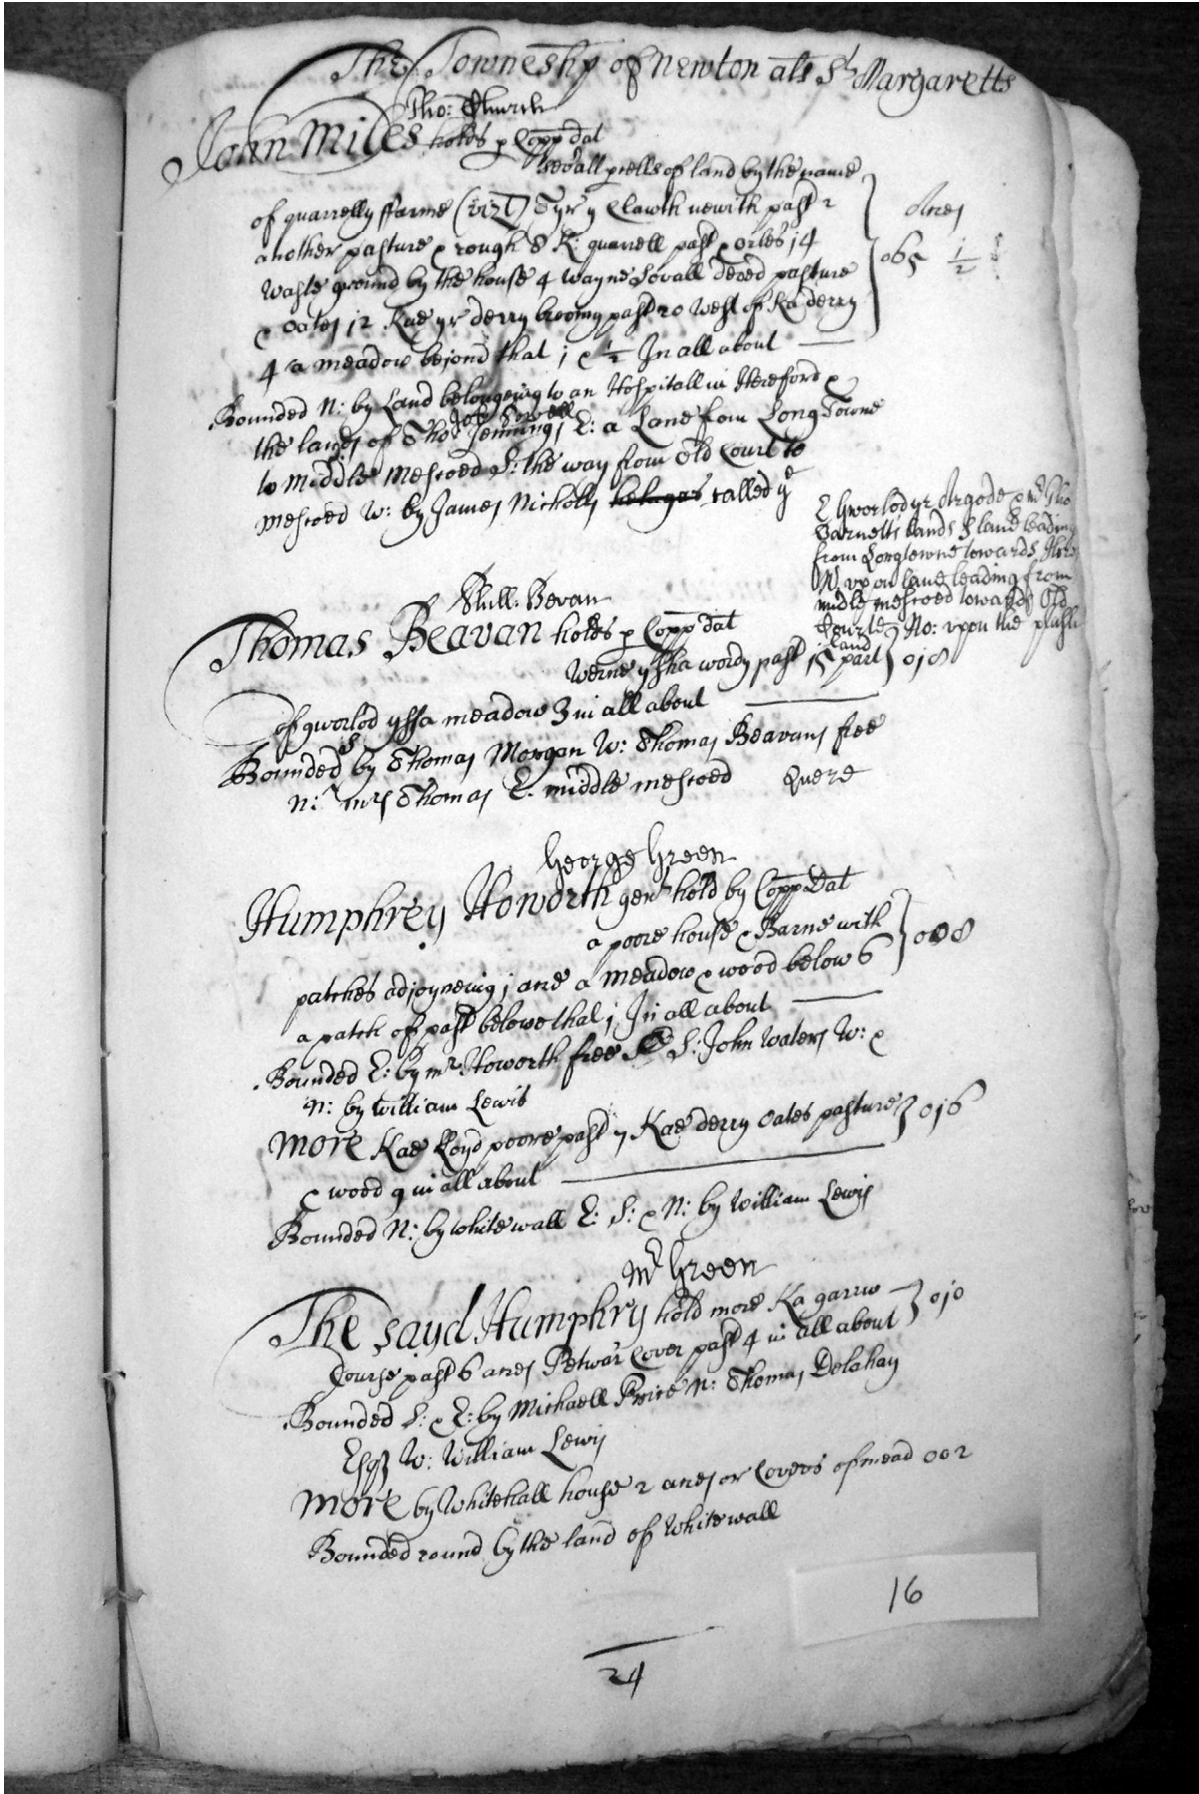 The Towneshp of Newton als St Margaretts
Tho: Church
John Miles holds p Copp dat
sevall pcells of land by the name
of quarrelly ffarme (vizt) Tyr y Clawth newith past 2
another pasture & rough 8 K: quarrell past & ortes 14
Waste ground by the house 4 wayne Sovall deced pasture
& Oates 12 Kae yr derry broomy past 20 West of Ka derry
4 a meadow beyond that 1 & 1/2 In all about
Acres
065 1/2
Bounded N: by Land belongeing to an Hospitall in Hereford &
the lands of Tho: Jennings E: a Lane from Long Towne
to Middle Mescoed S: the way from Old Court to
Mescoed W: by James Nicholls called ye
E Gworlod yr Argode & mr Tho
Barnetts lands S lane leading
from Longtowne towards
W. upon lane leading from
midle mescoed towards Old
Courte No: upon the
Will: Bevan
Thomas Beavan holds p Copp dat
Werne yska wordy past 15 part
land
018
of gworlod yssa meadow 3 in all about
Bounded S by Thomas Morgan W: Thomas Beavans free
N: mrs Thomas E. middle mescoed Quere
George Green
Humphrey Howorth gent hold by Copp Dat
a poore house & Barne with
008
patches adjoyneing 1 acre a meadow & wood below 6
a patch of past belowe that 1 In all about
Bounded E: by mr Howorth free S: John Waters W: &
N: by William Lewis
More Kae lloyd poore past 7 Kae derry Oates pasture 016
& wood 9 in all about
Bounded N: by white wall E: S: & N: by William Lewis
Mr Green
The sayd Humphry hold more Ka garrw 010
Course past 6 acres Petwar Cover past 4 in all about
Bounded S: & E: by Michaell Price N: Thomas Delahay
Esqr W: William Lewis
More by Whitehall house 2 acres or Covers of mead 002
Bounded round by the land of Whitewall
16
24